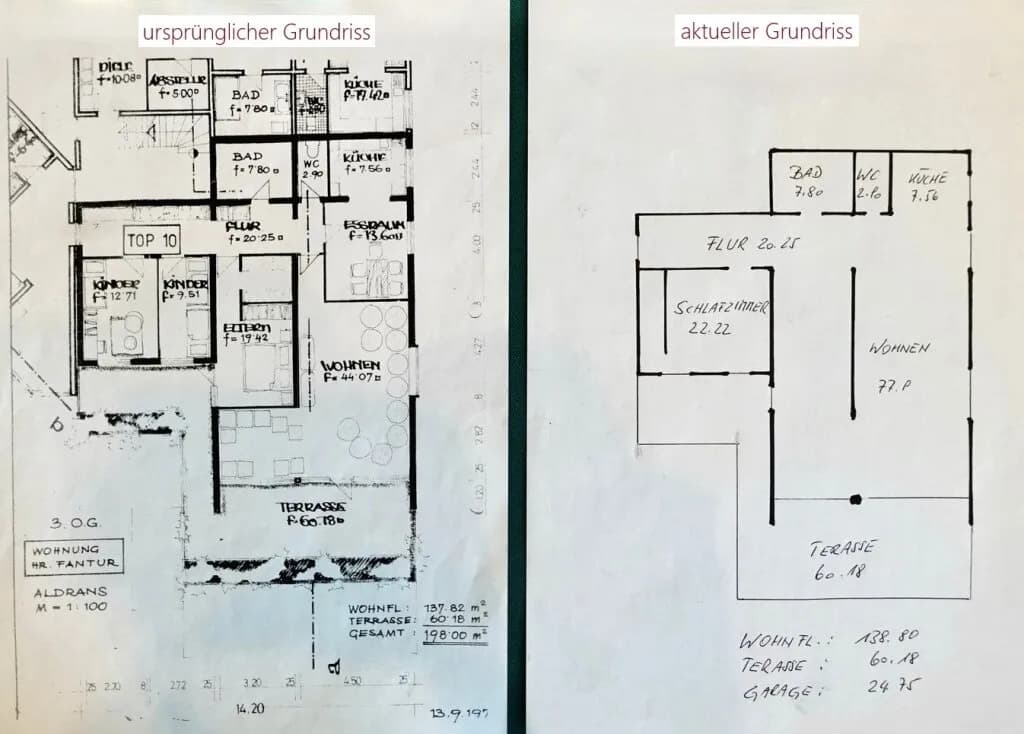 ursprünglicher Grundriss
DIELE
f=10.08
ABSTELLR.
f=5.00
BAD
f=7.80
WC
KÜCHE
BAD
f=7.80
WC
2.90
KÜCHE
f=7.56
FLUR
f=20.25
ESSRAUM
f=13.60
TOP 10
KINDER
f=12.71
KINDER
f=9.51
ELTERN
f=19.42
WOHNEN
f=44.07
TERRASSE
f=60.18
3. O.G.
WOHNUNG
HR. FANTUR
ALDRANS
M = 1:100
WOHNFL: 137.82 m²
TERRASSE: 60.18 m²
GESAMT: 198.00 m²
25 2.70 8 2.72 25 3.20 25 4.50 25
14.20
a
b
13.9.197
12 2.44
2.44
25
4.00
8
4.27
8
2.82
25
1.20
aktueller Grundriss
BAD
7.80
WC
KÜCHE
7.56
FLUR 20.25
SCHLAFZIMMER
22.22
WOHNEN
TERASSE
60.18
WOHNFL.: 138.80
TERASSE: 60.18
GARAGE: 24.75